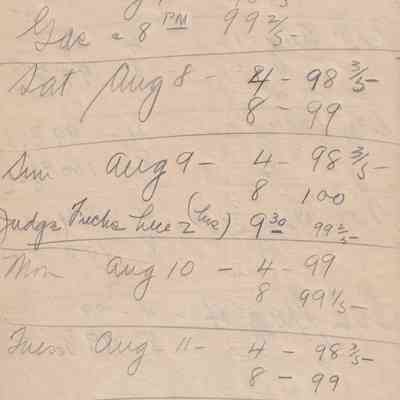 Gas @ 8 PM 99 2/5 -
Sat Aug 8 - 4 - 98 3/5 -
8 - 99
Sun Aug 9 - 4 - 98 3/5 -
8 100
Judge here 2 (hrs) 9 30 99 2/5 -
Mon Aug 10 - 4 - 99
8 99 1/5 -
Tuess Aug - 11 - 4 - 98 3/5 -
8 - 99